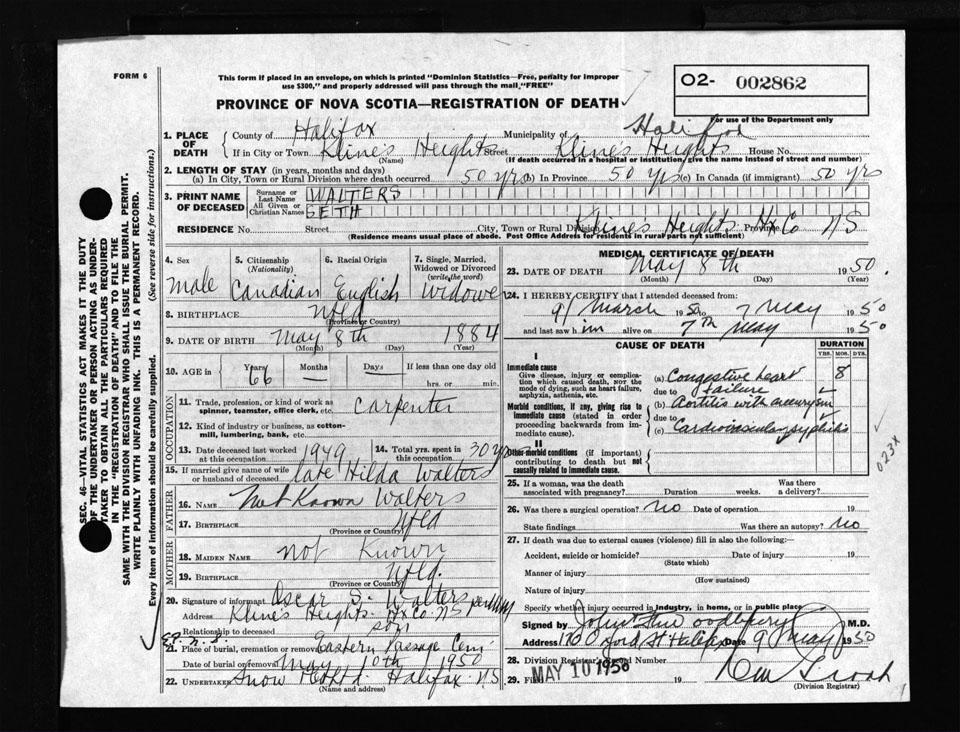 FORM 6
This form if placed in an envelope, on which is printed "Dominion Statistics—Free, penalty for improper
use $300," and properly addressed will pass through the mail "FREE"
O2- 002862
PROVINCE OF NOVA SCOTIA—REGISTRATION OF DEATH
For use of the Department only
1. PLACE OF DEATH
County of Halifax Municipality of Halifax
If in City or Town Kline's Heights Street Kline's Heights House No.
(Name) (If death occurred in a hospital or institution, give the name instead of street and number)
2. LENGTH OF STAY (in years, months and days)
(a) In City, Town or Rural Division where death occurred 50 yrs (b) In Province 50 yrs (c) In Canada (if immigrant) 50 yrs
3. PRINT NAME OF DECEASED
Surname or Last Name WALTERS
All Given or Christian Names SETH
RESIDENCE No. Street City, Town or Rural Division Kline's Heights Hx Co Province NS
(Residence means usual place of abode. Post Office Address for residents in rural parts not sufficient)
4. Sex Male
5. Citizenship (Nationality) Canadian
6. Racial Origin English
7. Single, Married, Widowed or Divorced (write the word) Widowe
8. BIRTHPLACE Nfld
(Province or Country)
9. DATE OF BIRTH May 8th 1884
(Month) (Day) (Year)
10. AGE in Years 66 Months — Days — If less than one day old
hrs. or min.
OCCUPATION
11. Trade, profession, or kind of work as spinner, teamster, office clerk, etc. Carpenter
12. Kind of industry or business, as cotton-mill, lumbering, bank, etc.
13. Date deceased last worked at this occupation 1949
14. Total yrs. spent in this occupation 30 yrs
15. If married give name of wife or husband of deceased late Hilda Walters
FATHER
16. NAME Not Known Walters
17. BIRTHPLACE Nfld
(Province or Country)
MOTHER
18. MAIDEN NAME not Known
19. BIRTHPLACE Nfld.
(Province or Country)
20. Signature of informant Oscar S. Walters
Address Kline's Heights Hx Co NS
Relationship to deceased son
21. Place of burial, cremation or removal Eastern Passage Cem
Date of burial or removal May 10th 1950
22. UNDERTAKER Snow & Co Ltd. Halifax NS
(Name and address)
MEDICAL CERTIFICATE OF DEATH
23. DATE OF DEATH May 8th 1950.
(Month) (Day) (Year)
24. I HEREBY CERTIFY that I attended deceased from:
9/ March 1950 to 7 May 1950
and last saw him alive on 7th May 1950
CAUSE OF DEATH
DURATION
YRS. MOS. DYS.
I
Immediate cause
Give disease, injury or complication which caused death, NOT the mode of dying, such as heart failure, asphyxia, asthenia, etc.
(a) Congestive heart failure 8
due to
Morbid conditions, if any, giving rise to immediate cause (stated in order proceeding backwards from immediate cause).
(b) Aortitis with aneurysm
due to
(c) Cardiovascular syphilis
II
Other morbid conditions (if important) contributing to death but not causally related to immediate cause.
023X
25. If a woman, was the death associated with pregnancy? Duration weeks. Was there a delivery?
26. Was there a surgical operation? no Date of operation 19
State findings Was there an autopsy? no
27. If death was due to external causes (violence) fill in also the following:—
Accident, suicide or homicide? Date of injury 19
(State which)
Manner of injury
(How sustained)
Nature of injury
Specify whether injury occurred in industry, in home, or in public place
Signed by John Woodbury M.D.
Address Halifax Date 9 May 1950
28. Division Registrar's Record Number
29. Filed MAY 10 1950 19
(Division Registrar)
SEC. 46—VITAL STATISTICS ACT MAKES IT THE DUTY
OF THE UNDERTAKER OR PERSON ACTING AS UNDERTAKER
TO OBTAIN ALL THE PARTICULARS REQUIRED
IN THE "REGISTRATION OF DEATH" AND TO FILE THE
SAME WITH THE DIVISION REGISTRAR WHO SHALL ISSUE THE BURIAL PERMIT.
WRITE PLAINLY WITH UNFADING INK. THIS IS A PERMANENT RECORD.
Every item of information should be carefully supplied. (See reverse side for instructions.)